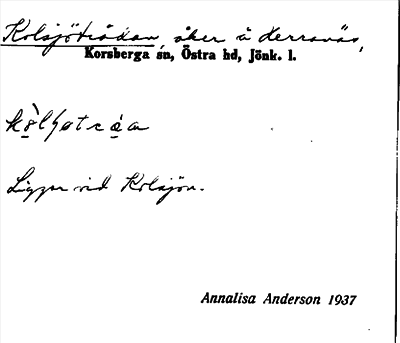 Kolsjöträdan, åker å Herranäs,
Korsberga sn, Östra hd, Jönk. l.
Ligger vid Kolsjön.
Annalisa Anderson 1937